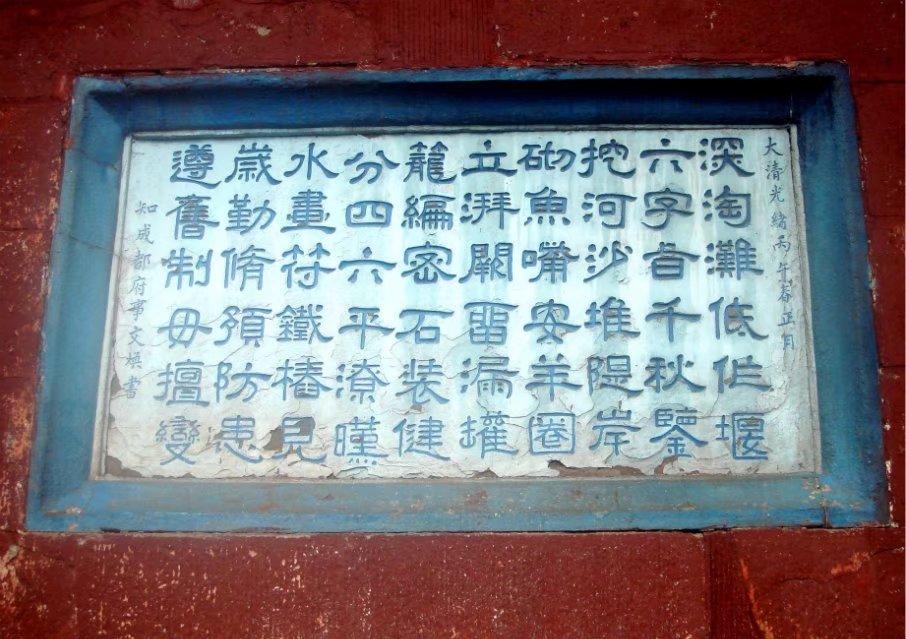 大清光緒丙午春正月
深淘灘低作堰
六字旨千秋鑒
挖河沙堆隄岸
砌魚嘴安羊圈
立湃闕留漏罐
籠編密石裝健
分四六平潦暵
水畫符鐵樁見
歲勤脩預防患
遵舊制毋擅變
知成都府事文煥書